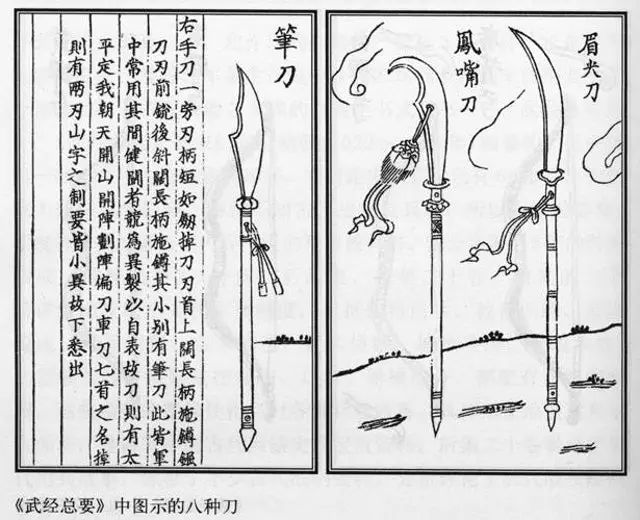 眉尖刀
鳳嘴刀
筆刀
右手刀一旁刃柄短如劒掉刀刃首上闊長柄施鐏
刀刃前銳後斜闊長柄施鐏其小別有筆刀此皆軍
中常用其間健鬭者競爲異製以自表故刀則有太
平定我朝天開山開陣劃陣偏刀車刀七首之名掉
則有两刃山字之制要皆小異故下悉出
《武经总要》中图示的八种刀